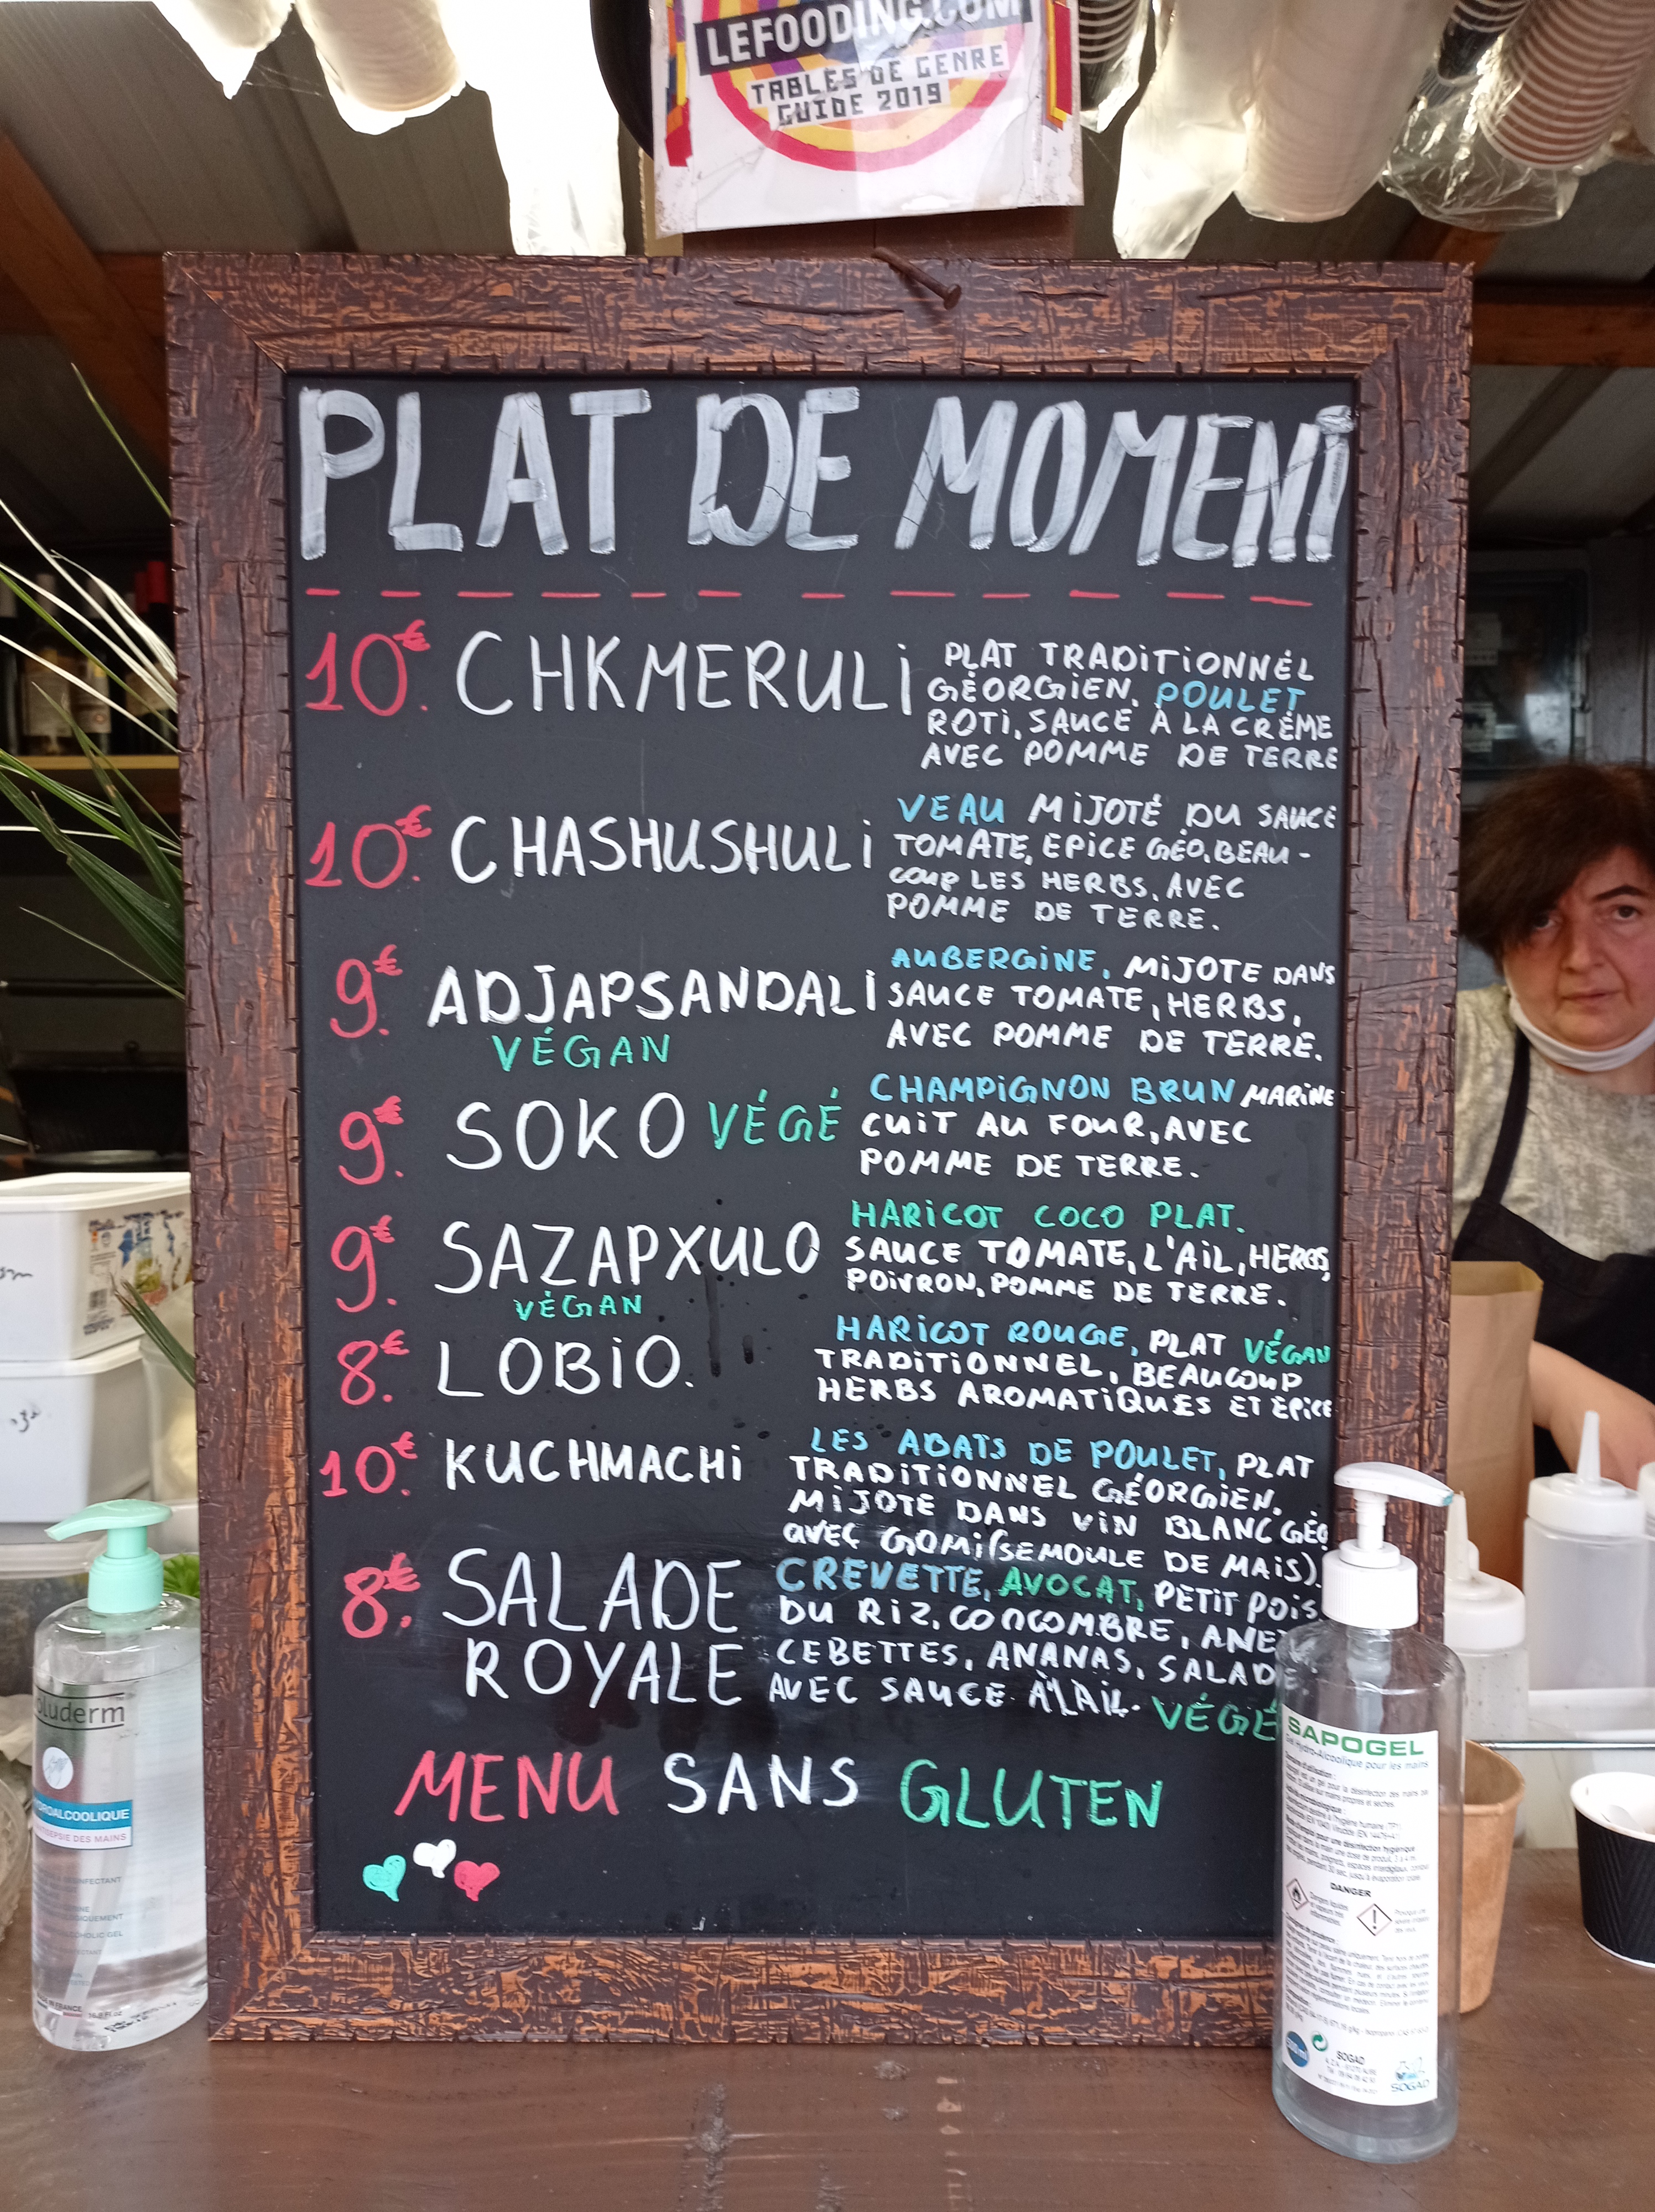 LEFOODING.COM
TABLES DE GENRE
GUIDE 2019
PLAT DE MOMENT
10€. CHKMERULI
PLAT TRADITIONNÉL
GÉORGIEN. POULET
ROTI, SAUCE À LA CRÈME
AVEC POMME DE TERRE
10€. CHASHUSHULI
VEAU MIJOTÉ DU SAUCE
TOMATE, EPICE GÉO, BEAU-
COUP LES HERBS, AVEC
POMME DE TERRE.
9€. ADJAPSANDALI
VÉGAN
AUBERGINE, MIJOTE DANS
SAUCE TOMATE, HERBS,
AVEC POMME DE TERRE.
9€. SOKO VÉGÉ
CHAMPIGNON BRUN MARINE
CUIT AU FOUR, AVEC
POMME DE TERRE.
9€. SAZAPXULO
VÉGAN
HARICOT COCO PLAT.
SAUCE TOMATE, L'AIL, HERBS,
POIVRON, POMME DE TERRE.
8€. LOBIO.
HARICOT ROUGE, PLAT VÉGAN
TRADITIONNEL, BEAUCOUP
HERBS AROMATIQUES ET EPICE
10€. KUCHMACHI
LES ABATS DE POULET, PLAT
TRADITIONNEL GÉORGIEN.
MIJOTE DANS VIN BLANC GÉO
AVEC GOMI (SEMOULE DE MAIS).
8€. SALADE
ROYALE
CREVETTE, AVOCAT, PETIT POIS.
DU RIZ, CONCOMBRE, ANET
CEBETTES, ANANAS, SALADE
AVEC SAUCE À L'AIL. VÉGÉ
MENU SANS GLUTEN
luderm
DROALCOOLIQUE
SEPSIE DES MAINS
SAPOGEL
Gel Hydro-Alcoolique pour les mains
DANGER
SOGAD
SOGAD